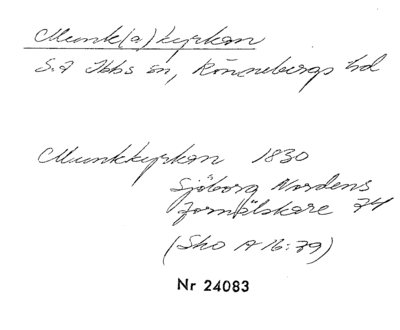 Munk(a)kyrkan
S:t Ibbs sn, Rönnebergs hd
Munkkyrkan 1830
Sjöborg Nordens
fornälskare 74
(Sko A 16:79)
Nr 24083